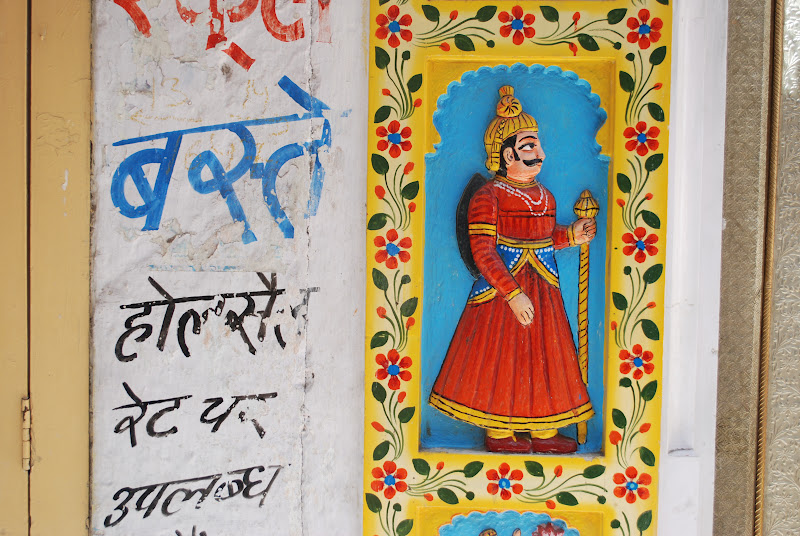 स्कूल
बस्ते
होलसैल
रेट पर
उपलब्ध